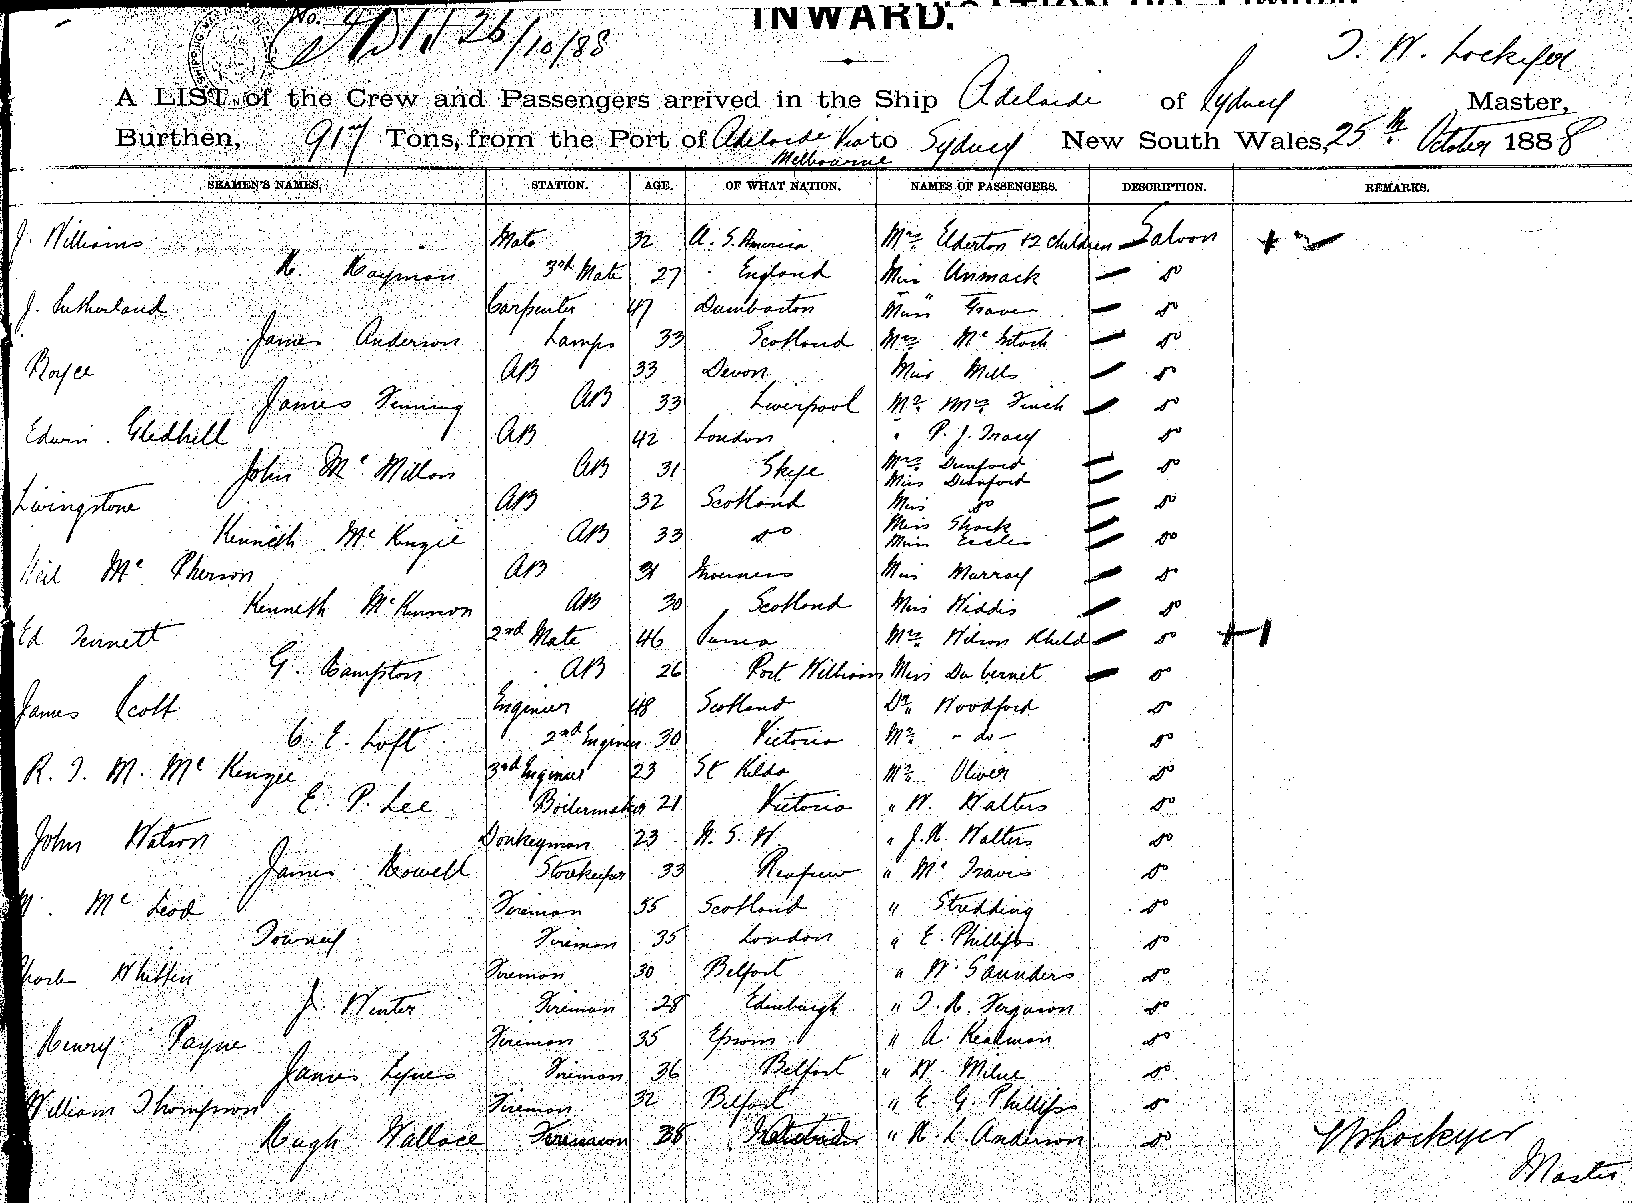 No.
26/10/88
INWARD.
J. W. Lockyer
A LIST of the Crew and Passengers arrived in the Ship Adelaide of Sydney Master,
Burthen, 917 Tons, from the Port of Adelaide Via to Sydney New South Wales, 25th October 1888
Melbourne
SEAMEN'S NAMES. STATION. AGE. OF WHAT NATION. NAMES OF PASSENGERS. DESCRIPTION. REMARKS.
J. Williams Mate 32 A. S. America Mrs Elderton + 2 children Saloon + 2
H. Hayman 3rd Mate 27 England Miss Unmack do
J. Sutherland Carpenter 47 Dumbarton Miss do
James Anderson Lamps 33 Scotland Mrs McIntosh do
Royce AB 33 Devon Miss Mills do
James Fenning AB 33 Liverpool Mr Mrs Finch do
Edwin Gledhill AB 42 London " P. J. Tracy do
John McMillan AB 31 Skye Mrs Dunford do
Miss Dunford
Livingstone AB 32 Scotland Miss do do
Kenneth McKenzie AB 33 do Miss Shock do
Miss Eccles
Neil McPherson AB 31 Inverness Miss Murray do
Kenneth McKinnon AB 30 Scotland Miss Kiddis do
Ed 2nd Mate 46 Mrs Wilson & Child do + 1
G. Hampton AB 26 Port William Miss Dubernet do
James Scott Engineer 48 Scotland Dr Woodford do
C. E. Loft 2nd Engineer 30 Victoria Mr - do - do
R. J. M. McKenzie 3rd Engineer 23 St Kilda Mr Oliver do
E. P. Lee Boilermaker 21 Victoria " W. Walters do
John Watson Donkeyman 23 N. S. W " J. H. Walters do
James Howell Storekeeper 33 Renfrew " McTravis do
McLeod Fireman 35 Scotland " Stredding do
Fireman 35 London " E. Phillips do
Whitten Fireman 30 Belfast " W. Saunders do
J. Winter Fireman 28 Edinburgh " J. H. Ferguson do
Henry Payne Fireman 35 Epsom " A. Readman do
James Lynes Fireman 36 Belfast " W. Milne do
William Thompson Fireman 32 Belfast " E. G. Phillips do
Hugh Wallace Fireman 38 " H. L. Anderson do
Lockyer
Master